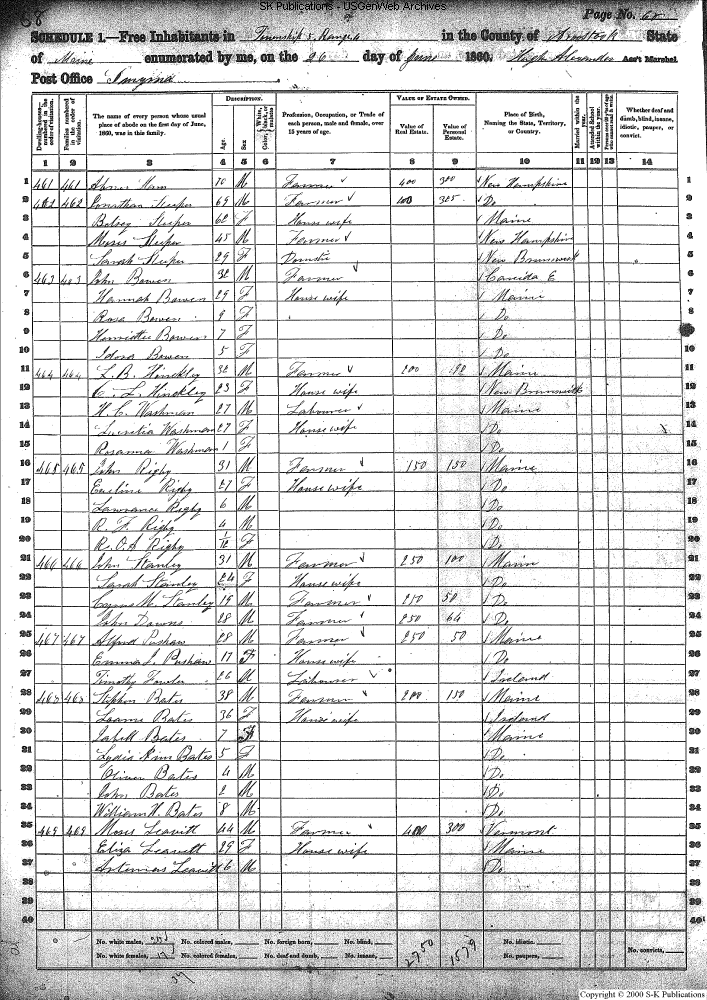 SK Publications - USGenWeb Archives
68
Page No. 68
SCHEDULE 1.—Free Inhabitants in Township 5 Range 4 in the County of Aroostook State
of Maine enumerated by me, on the 26 day of June 1860. Hugh Alexander Ass't Marshal.
Post Office Smyrna
Dwelling-houses— numbered in the order of visitation.
Families numbered in the order of visitation.
The name of every person whose usual place of abode on the first day of June, 1860, was in this family.
DESCRIPTION.
Age.
Sex.
Color, White, black, or mulatto
Profession, Occupation, or Trade of each person, male and female, over 15 years of age.
VALUE OF ESTATE OWNED.
Value of Real Estate.
Value of Personal Estate.
Place of Birth, Naming the State, Territory, or Country.
Married within the year.
Attended School within the year.
Whether deaf and dumb, blind, insane, idiotic, pauper, or convict.
1 2 3 4 5 6 7 8 9 10 11 12 13 14
1 461 461 Abner Ham 70 M Farmer 400 300 New Hampshire 1
2 462 462 Jonathan Sleeper 69 M Farmer 100 325 Do 2
3 Betsey Sleeper 62 F House wife Maine 3
4 Moses Sleeper 45 M Farmer New Hampshire 4
5 Sarah Sleeper 29 F Domestic New Brunswick 5
6 463 463 John Bowen 32 M Farmer Canida E 6
7 Hannah Bowen 29 F House wife Maine 7
8 Rosa Bowen 9 F Do 8
9 Henriettee Bowen 7 F Do 9
10 Idora Bowen 5 F Do 10
11 464 464 L. B. Hinckley 32 M Farmer 200 Maine 11
12 C. L. Hinckley 23 F House wife New Brunswick 12
13 H. C. Washman 27 M Labourer Maine 13
14 Lucretia Washman 27 F House wife Do 14
15 Rosanna Washman 1 F Do 15
16 465 465 John Rigby 31 M Farmer 150 150 Maine 16
17 Eveline Rigby 27 F House wife Do 17
18 Lawrance Rigby 6 M Do 18
19 R. F. Rigby 4 M Do 19
20 R. O. A. Rigby /12 M Do 20
21 466 466 John Stanley 31 M Farmer 250 100 Main 21
22 Sarah Stanley 24 F House wife Do 22
23 Cyrus M. Stanley 19 M Farmer 250 50 Do 23
24 John Downs 28 M Farmer 250 64 Do 24
25 467 467 Alfred Pushaw 28 M Farmer 250 50 Maine 25
26 Emma J. Pushaw 17 F House wife Do 26
27 Timothy Fowler 26 M Labourer Ireland 27
28 468 468 Stephen Bates 38 M Farmer 200 150 Maine 28
29 Bates 36 F House wife Ireland 29
30 Isabell Bates 7 F Maine 30
31 Lydia Ann Bates 5 F Do 31
32 Oliver Bates 4 M Do 32
33 John Bates 2 M Do 33
34 William H. Bates 8 M Do 34
35 469 469 Moses Leavitt 44 M Farmer 400 300 Vermont 35
36 Eliza Leavitt 29 F House wife Maine 36
37 Artemas Leavitt 6 M Do 37
38 38
39 39
40 40
No. white males, No. colored males, No. foreign born, No. blind, No. idiotic,
No. white females, 17 No. colored females, No. deaf and dumb, No. insane, 2750 1579 No. paupers, No. convicts,
37
Copyright © 2000 S-K Publications